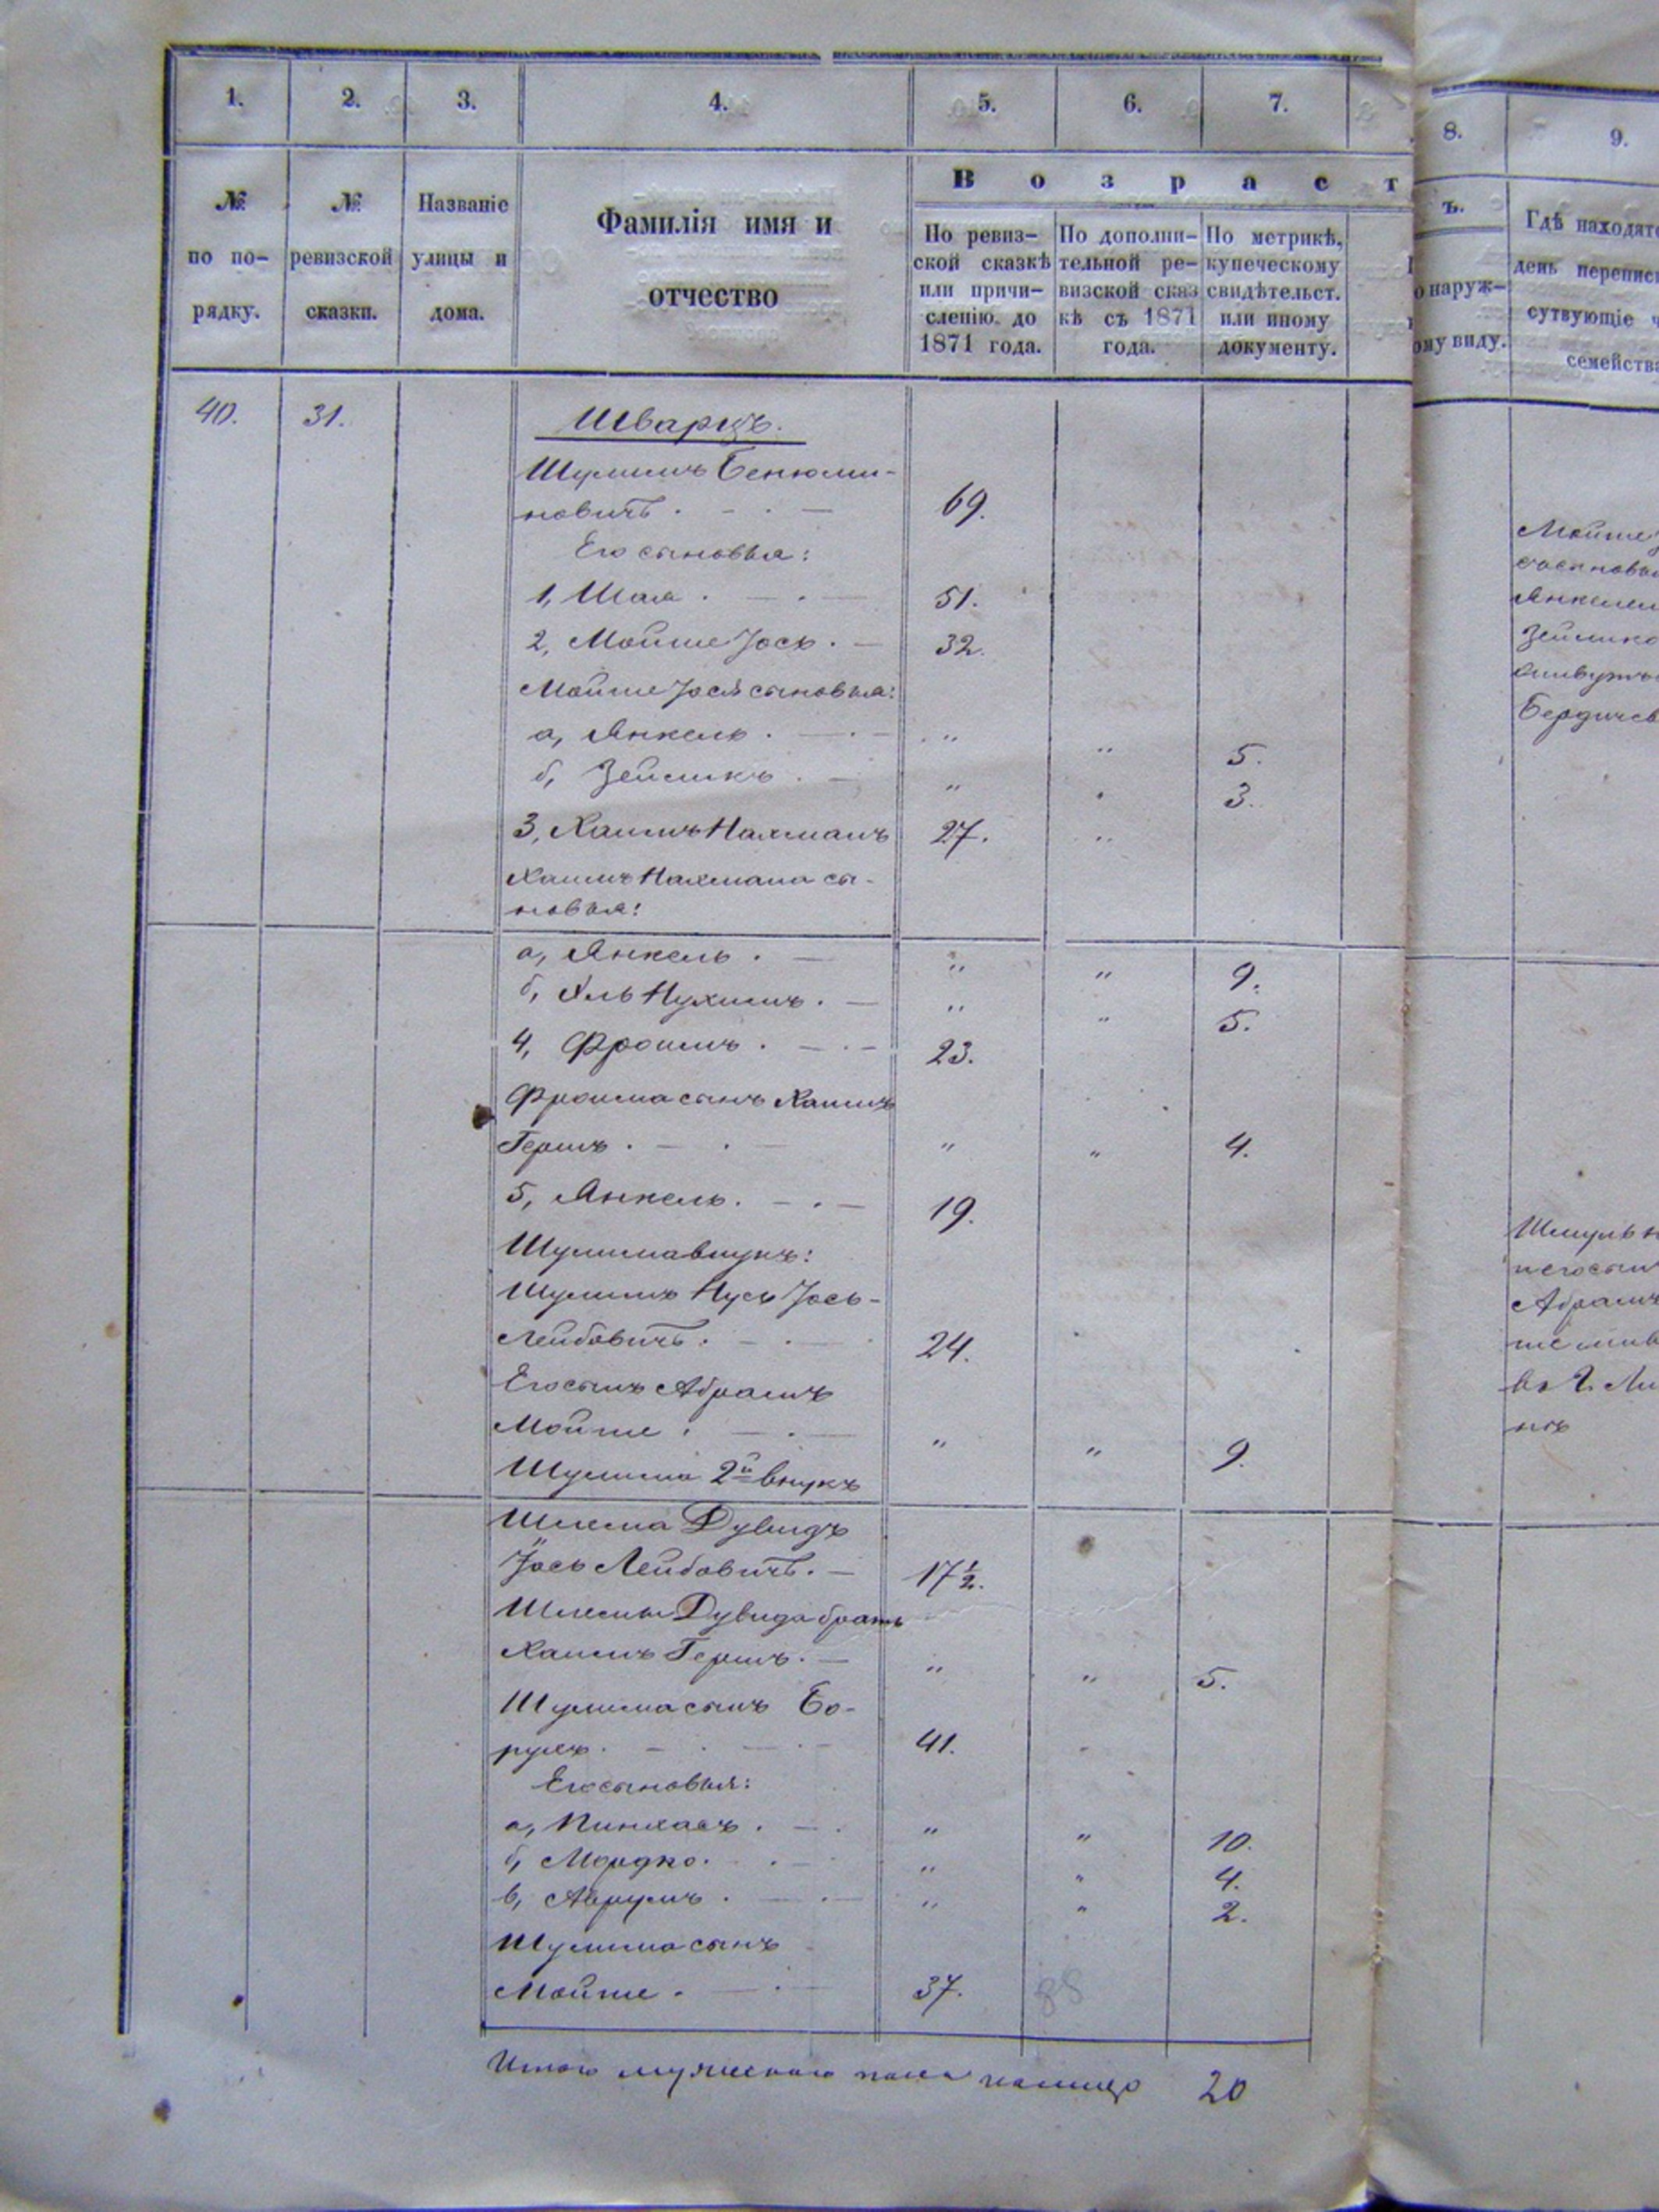 1. 2. 3. 4. 5. 6. 7.
№ по порядку.
№ ревизской сказки.
Названіе улицы и дома.
Фамилія имя и отчество
Возраст
По ревиз-
ской сказкѣ
или причи-
сленію до
1871 года.
По дополни-
тельной ре-
визской сказ
кѣ съ 1871
года.
По метрикѣ,
купеческому
свидѣтельст.
или иному
документу.
40. 31. Шварцъ.
Шулимъ Бенюми-
новичъ. 69.
Его сыновья:
1, Шая. 51.
2, Мойше Іось. 32.
Мойше Іося сыновья:
а, Янкель. " " 5.
б, Зейликъ. " " 3.
3, Хаимъ Нахманъ 27. "
Хаимъ Нахмана сы-
новья:
а, Янкель. " " 9.
б, Нухимъ. " " 5.
4, Фроимъ. 23.
Фроима сынъ Хаимъ
Гершъ. " " 4.
5, Янкель. 19.
Шулима внукъ:
Шулимъ Нусь Іось-
Лейбовичъ. 24.
Его сынъ Абрамъ
Мойше. " " 9.
Шулима 2й внукъ
Шлема Дувидъ
Іось Лейбовичъ. 17½.
Шлемы Дувида братъ
Хаимъ Гершъ. " " 5.
Шулима сынъ Бо-
рухъ. 41.
Его сыновья:
а, Пинхасъ. " " 10.
б, Мордко. " " 4.
в, Аврумъ. " " 2.
Шулима сынъ
Мойше. 37. 88
Итого мужескаго пола 20
8. 9.
ъ.
о наруж-
ому виду.
Гдѣ находятс
день переписи
сутвующіе ч
семейства
Мойше
Янкелем
Зейлико
Бердичев
Шмуль Н
и его сын
Абрамъ